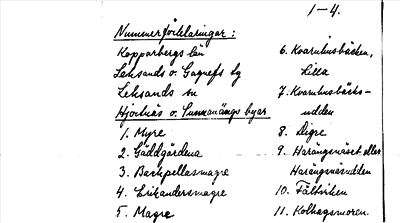 1-4.
Nummerförklaringar:
Kopparbergs län
Leksands o. Gagnefs tg
Leksands sn
Hjortnäs o. Sunnanängs byar
1. Myre
2. Gäddgårdena
3. Backpellasmagre
4. Erikandersmagre
5. Magre
6. Kvarnhusbäcken,
Lilla
7. Kvarnhusbäcks-
udden
8. Digre
9. Harängsnäset eller
Harängsnäsudden
10. Fäboviken
11. Kolhagsmoren.